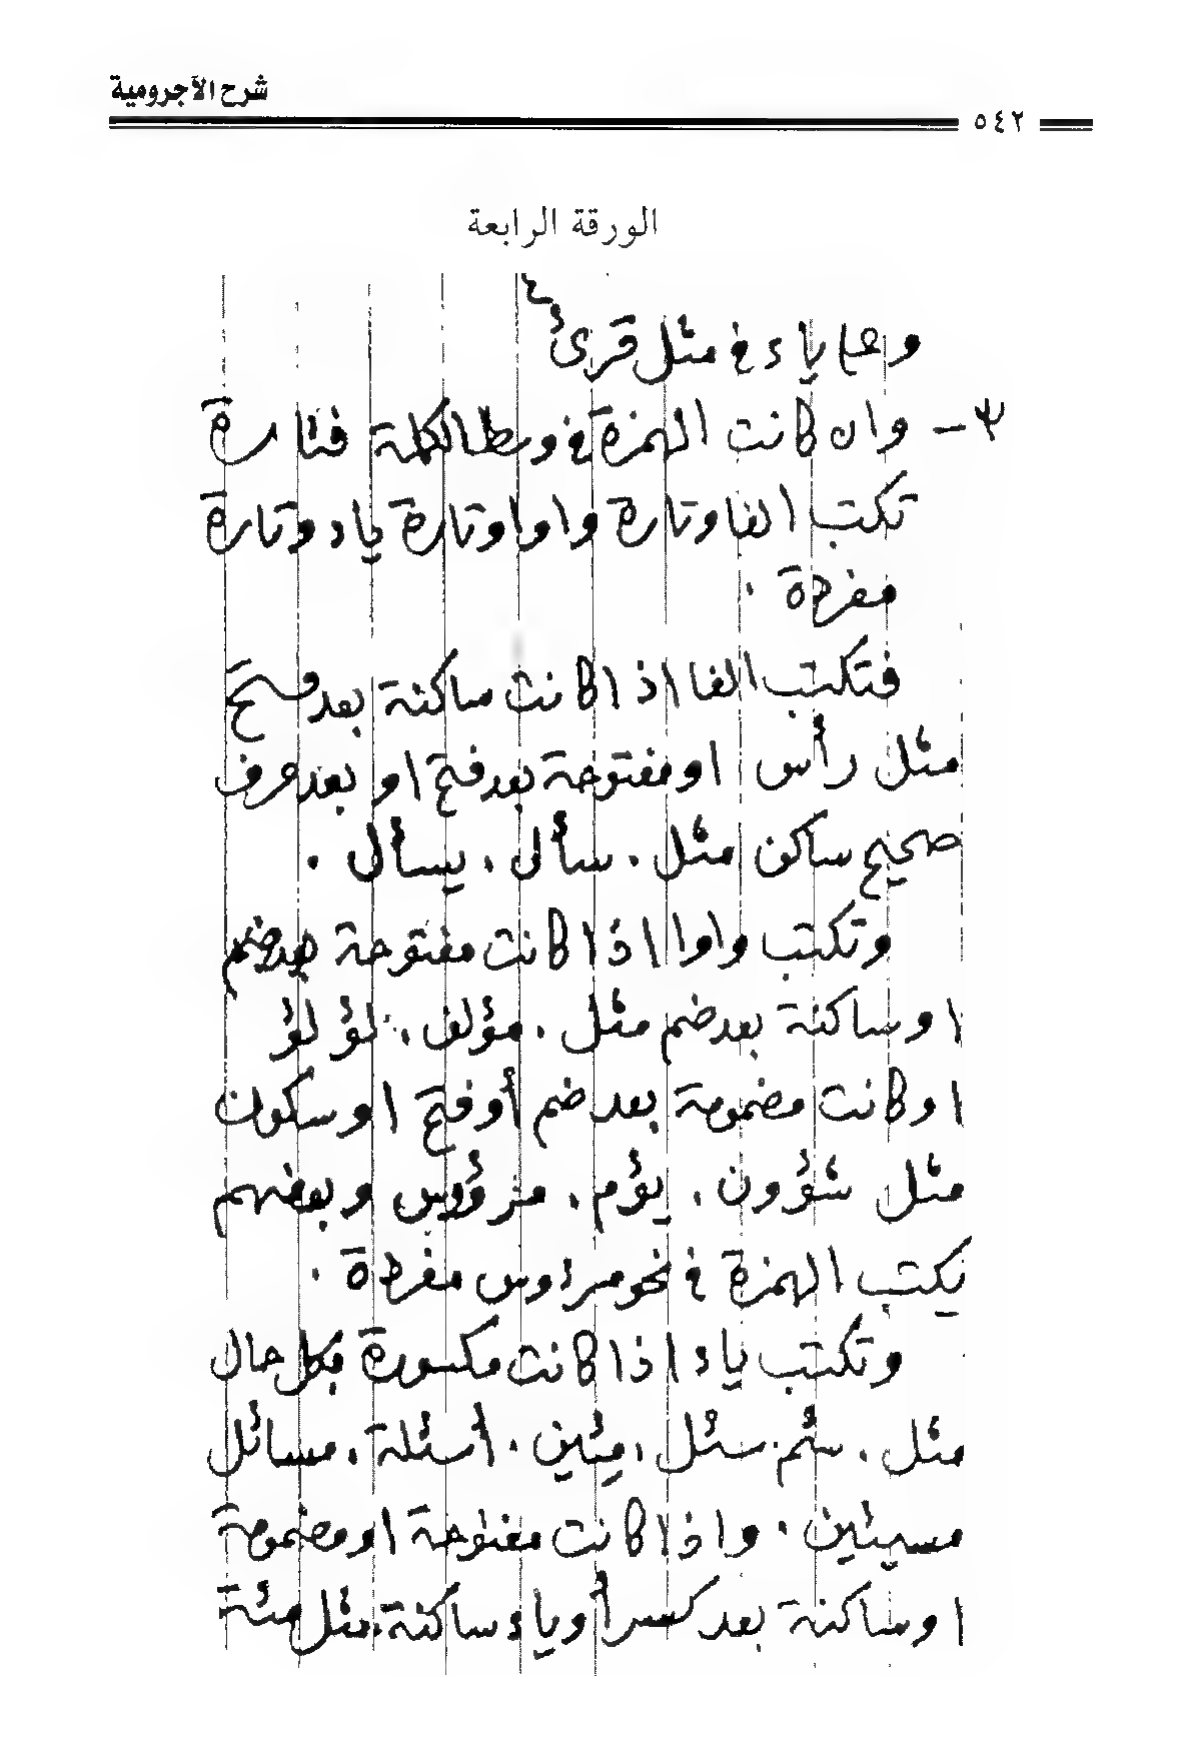 شرح الآجرومية
٥٤٢
الورقة الرابعة
٤
وعلى ياء في مثل قرئ
٣ – وان كانت الهمزة في وسط الكلمة فتارة
تكتب الفا وتارة واوا وتارة ياء وتارة
مفردة .
فتكتب الفا اذا كانت ساكنة بعد فتح
مثل رأس او مفتوحة بعد فتح او بعد حرف
صحيح ساكن مثل . سأل . يسأل .
وتكتب واوا اذا كانت مفتوحة بعد ضم
او ساكنة بعد ضم مثل . مؤلف . لؤلؤ
او كانت مضمومة بعد ضم أو فتح او سكون
مثل شؤون . يؤم . مرؤوس وبعضهم
يكتب الهمزة في نحو مرءوس مفردة .
وتكتب ياء اذا كانت مكسورة بكل حال
مثل . سئم . سئل . مئين . أسئلة . مسائل
مسيئين . واذا كانت مفتوحة او مضمومة
او ساكنة بعد كسر أو ياء ساكنة . مثل مئة